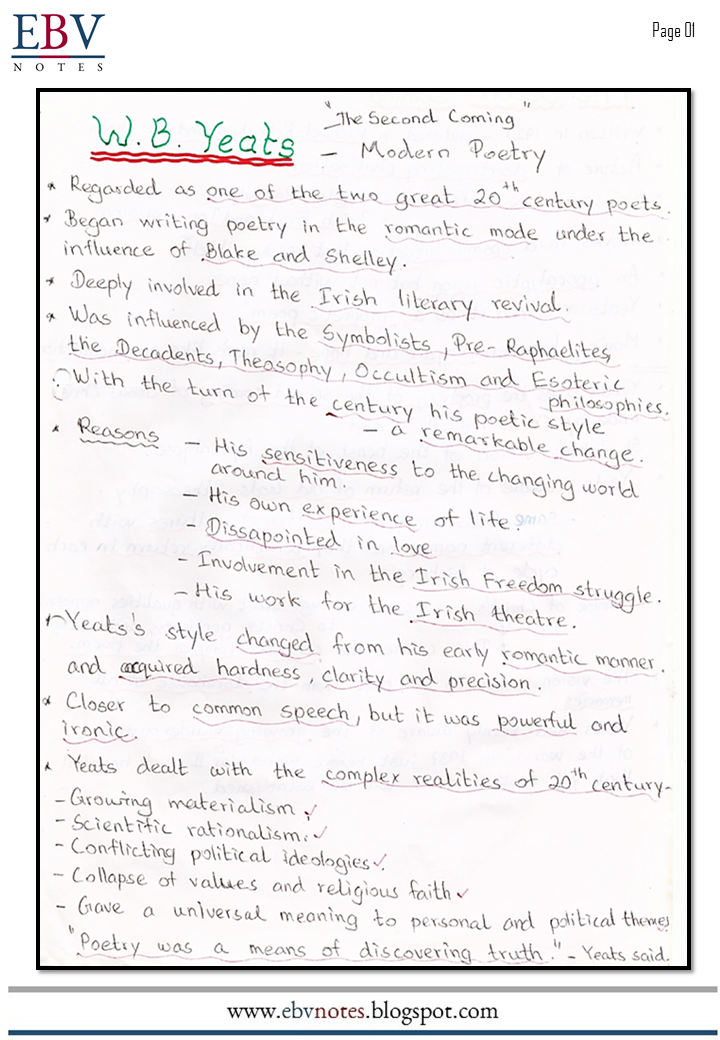 EBV
NOTES
Page 01
"The Second Coming"
W.B. Yeats
- Modern Poetry
* Regarded as one of the two great 20th century poets.
* Began writing poetry in the romantic mode under the
influence of Blake and Shelley.
* Deeply involved in the Irish literary revival.
* Was influenced by the Symbolists, Pre-Raphaelites,
the Decadents, Theosophy, Occultism and Esoteric
philosophies.
With the turn of the century his poetic style
- a remarkable change.
* Reasons - His sensitiveness to the changing world
around him.
- His own experience of life.
Dissapointed in love
- Involvement in the Irish Freedom struggle.
- His work for the Irish theatre.
Yeats's style changed from his early romantic manner.
and acquired hardness, clarity and precision.
* Closer to common speech, but it was powerful and
ironic.
* Yeats dealt with the complex realities of 20th century-
- Growing materialism ✓
- Scientific rationalism. ✓
- Conflicting political ideologies ✓.
- Collapse of values and religious faith ✓
- Gave a universal meaning to personal and political themes
"Poetry was a means of discovering truth." - Yeats said.
www.ebvnotes.blogspot.com